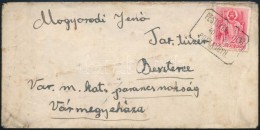 Mogyorodi Jenő
Tart. tüzér
Beszterce
Var. m. kat. parancsnokság
Vármegyeháza